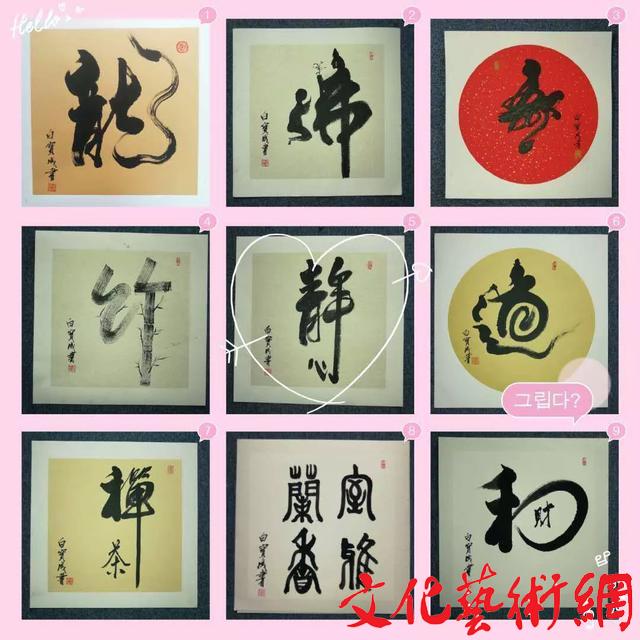 Hello
1
龍
白寶成書
2
佛
白寶成書
3
壽
白寶成書
4
竹
白寶成書
5
靜心
白寶成書
6
道
白寶成書
그립다?
7
禪
茶
白寶成書
8
室雅
蘭香
白寶成書
9
和
財
白寶成書
文化藝術網